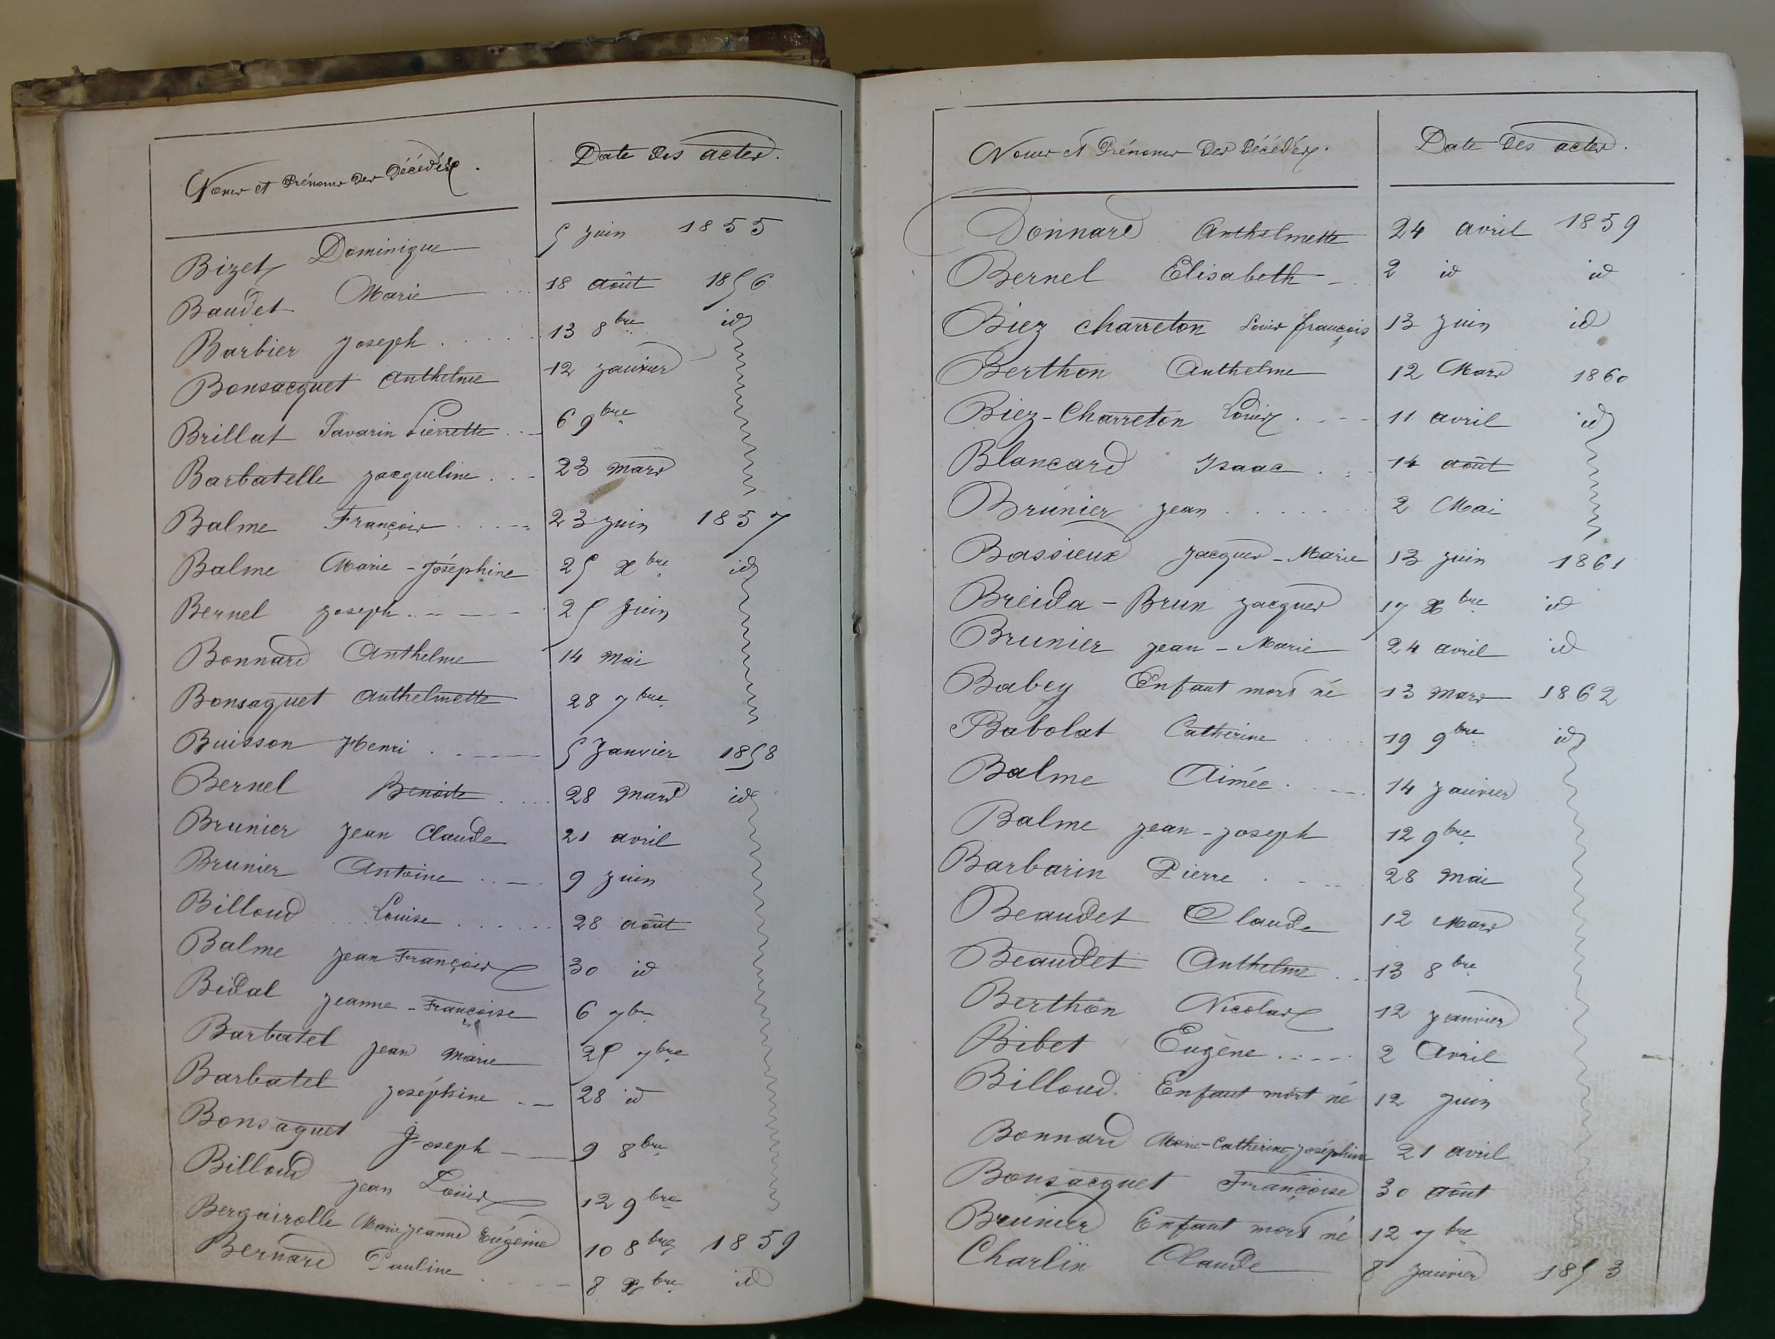 Noms et Prénoms des Décédés. Date des actes.
Bizet Dominique 5 Juin 1855
Baudet Marie 18 août 1856
Barbier Joseph 13 8bre id
Bonsacquet Anthelme 12 Janvier
Brillat Savarin Pierrette 6 9bre
Barbatelle Jacqueline 23 Mars
Balme François 23 Juin 1857
Balme Marie-Joséphine 25 Xbre id
Bernel Joseph 25 Juin
Bonnard Anthelme 14 Mai
Bonsaguet Anthelmette 28 7bre
Buisson Henri 5 Janvier 1858
Bernel Benoite 28 Mars id
Brunier Jean Claude 21 avril
Brunier Antoine 9 Juin
Billoud Louise 28 août
Balme Jean François 30 id
Bidal Jeanne-Françoise 6 7bre
Barbatel Jean Marie 25 7bre
Barbatel Joséphine 28 id
Bonsaguet Joseph 9 8bre
Billoud Jean Louis 12 9bre
Bergairolle Marie Jeanne Eugénie 10 8bre 1859
Bernard Pauline 8 Xbre id
Noms et Prénoms des Décédés. Date des actes.
Bonnard Anthelmette 24 avril 1859
Bernel Elisabeth 2 id id
Biez charreton Louis François 13 Juin id
Berthon Anthelme 12 Mars 1860
Biez-Charreton Louis 11 avril id
Blancard Isaac 14 août
Brunier Jean 2 Mai
Bassieux Jacques-Marie 13 Juin 1861
Breida-Brun Jacques 17 Xbre id
Brunier Jean-Marie 24 avril id
Babey Enfant mort né 13 Mars 1862
Babolat Catherine 19 9bre id
Balme Aimée 14 Janvier
Balme Jean-Joseph 12 9bre
Barbarin Pierre 28 Mai
Beaudet Claude 12 Mars
Beaudet Anthelme 13 8bre
Berthon Nicolas 12 Janvier
Bibet Eugène 2 Avril
Billoud. Enfant mort né 12 Juin
Bonnard Marie-Catherine Joséphine 21 avril
Bonsacquet Françoise 30 août
Brunier Enfant mort né 12 7bre
Charlin Claude 8 Janvier 1853